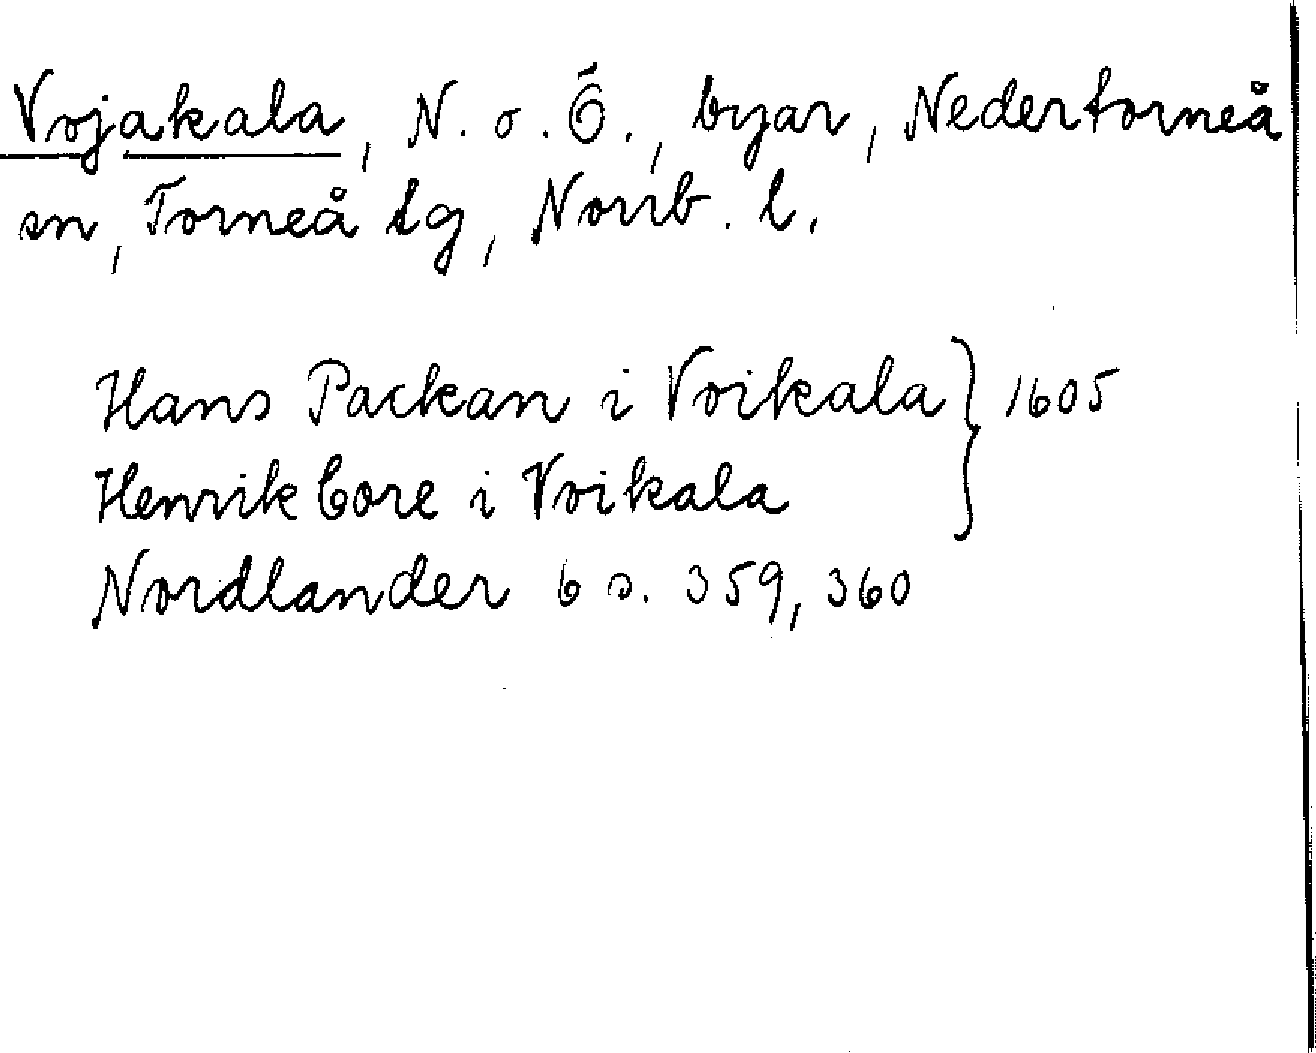 Vojakala, N. o. Ö., byar, Nedertorneå
sn, Torneå tg, Norrb. l.
Hans Packan i Voikala } 1605
Henrik Core i Voikala
Nordlander 6 s. 359, 360